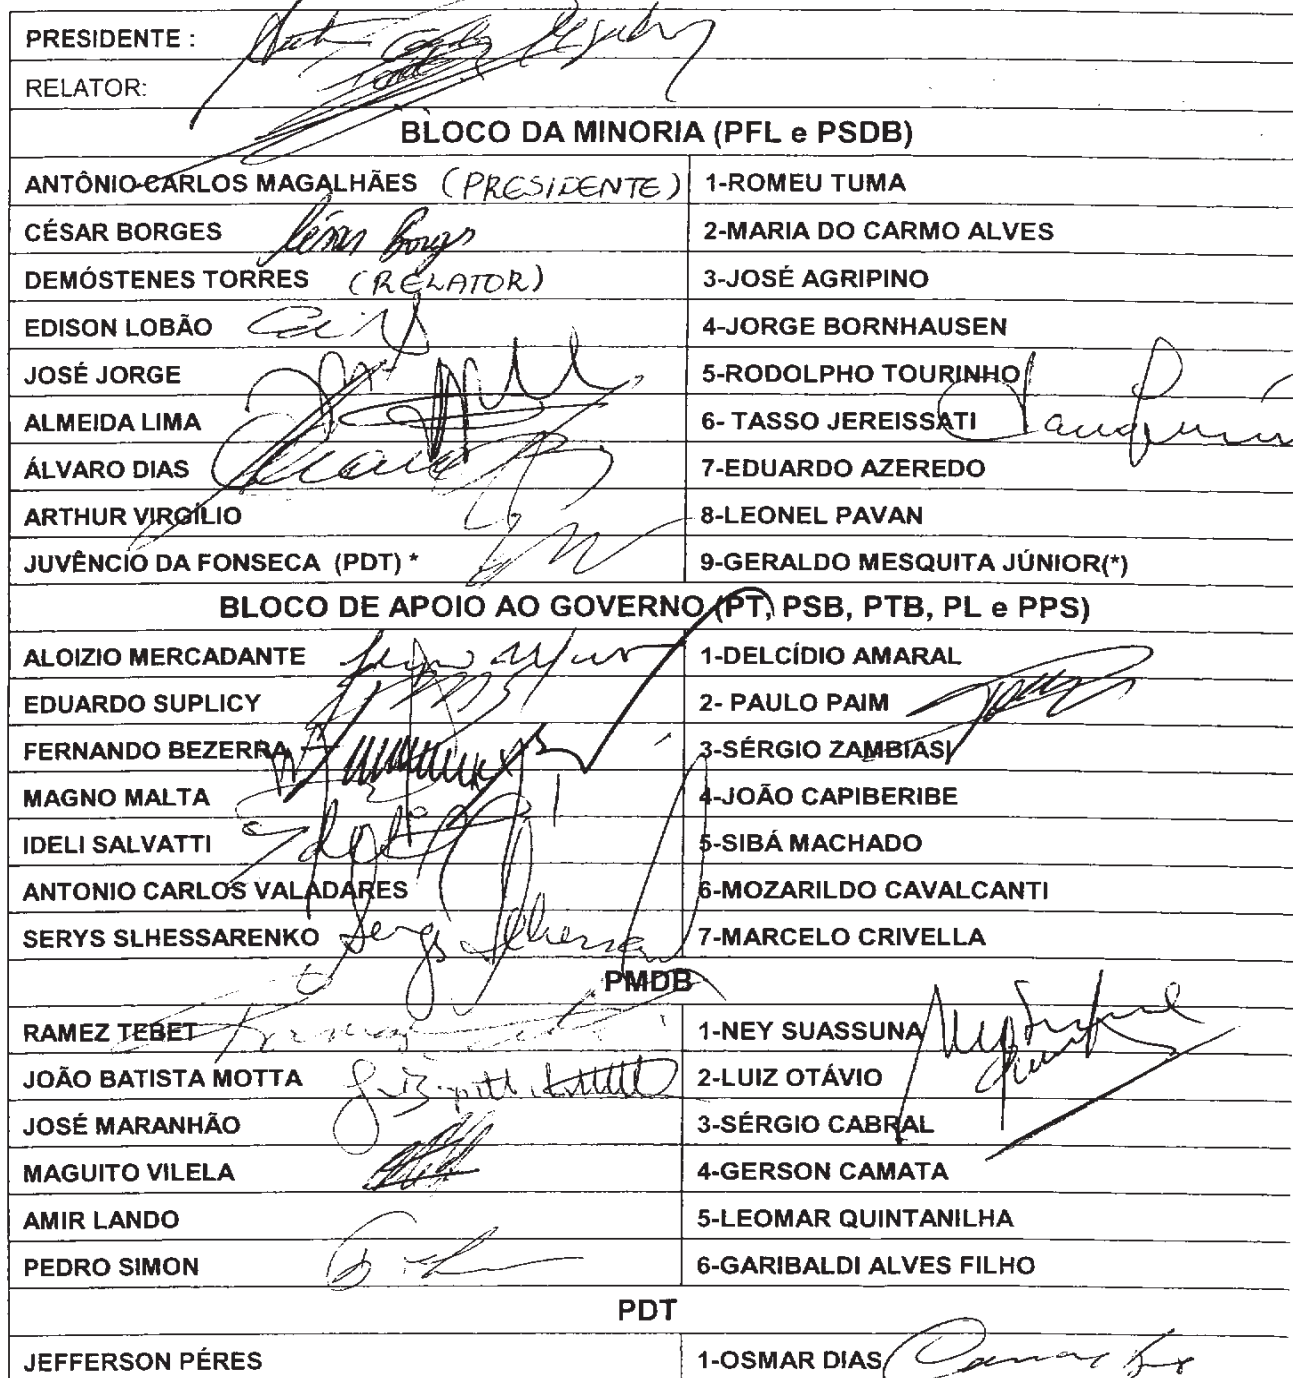 PRESIDENTE :
RELATOR:
BLOCO DA MINORIA (PFL e PSDB)
ANTÔNIO CARLOS MAGALHÃES (PRESIDENTE) 1-ROMEU TUMA
CÉSAR BORGES César Borges 2-MARIA DO CARMO ALVES
DEMÓSTENES TORRES (RELATOR) 3-JOSÉ AGRIPINO
EDISON LOBÃO 4-JORGE BORNHAUSEN
JOSÉ JORGE 5-RODOLPHO TOURINHO
ALMEIDA LIMA 6- TASSO JEREISSATI
ÁLVARO DIAS 7-EDUARDO AZEREDO
ARTHUR VIRGÍLIO 8-LEONEL PAVAN
JUVÊNCIO DA FONSECA (PDT) * 9-GERALDO MESQUITA JÚNIOR(*)
BLOCO DE APOIO AO GOVERNO (PT, PSB, PTB, PL e PPS)
ALOIZIO MERCADANTE 1-DELCÍDIO AMARAL
EDUARDO SUPLICY 2- PAULO PAIM
FERNANDO BEZERRA 3-SÉRGIO ZAMBIASI
MAGNO MALTA 4-JOÃO CAPIBERIBE
IDELI SALVATTI 5-SIBÁ MACHADO
ANTONIO CARLOS VALADARES 6-MOZARILDO CAVALCANTI
SERYS SLHESSARENKO 7-MARCELO CRIVELLA
PMDB
RAMEZ TEBET 1-NEY SUASSUNA
JOÃO BATISTA MOTTA 2-LUIZ OTÁVIO
JOSÉ MARANHÃO 3-SÉRGIO CABRAL
MAGUITO VILELA 4-GERSON CAMATA
AMIR LANDO 5-LEOMAR QUINTANILHA
PEDRO SIMON 6-GARIBALDI ALVES FILHO
PDT
JEFFERSON PÉRES 1-OSMAR DIAS